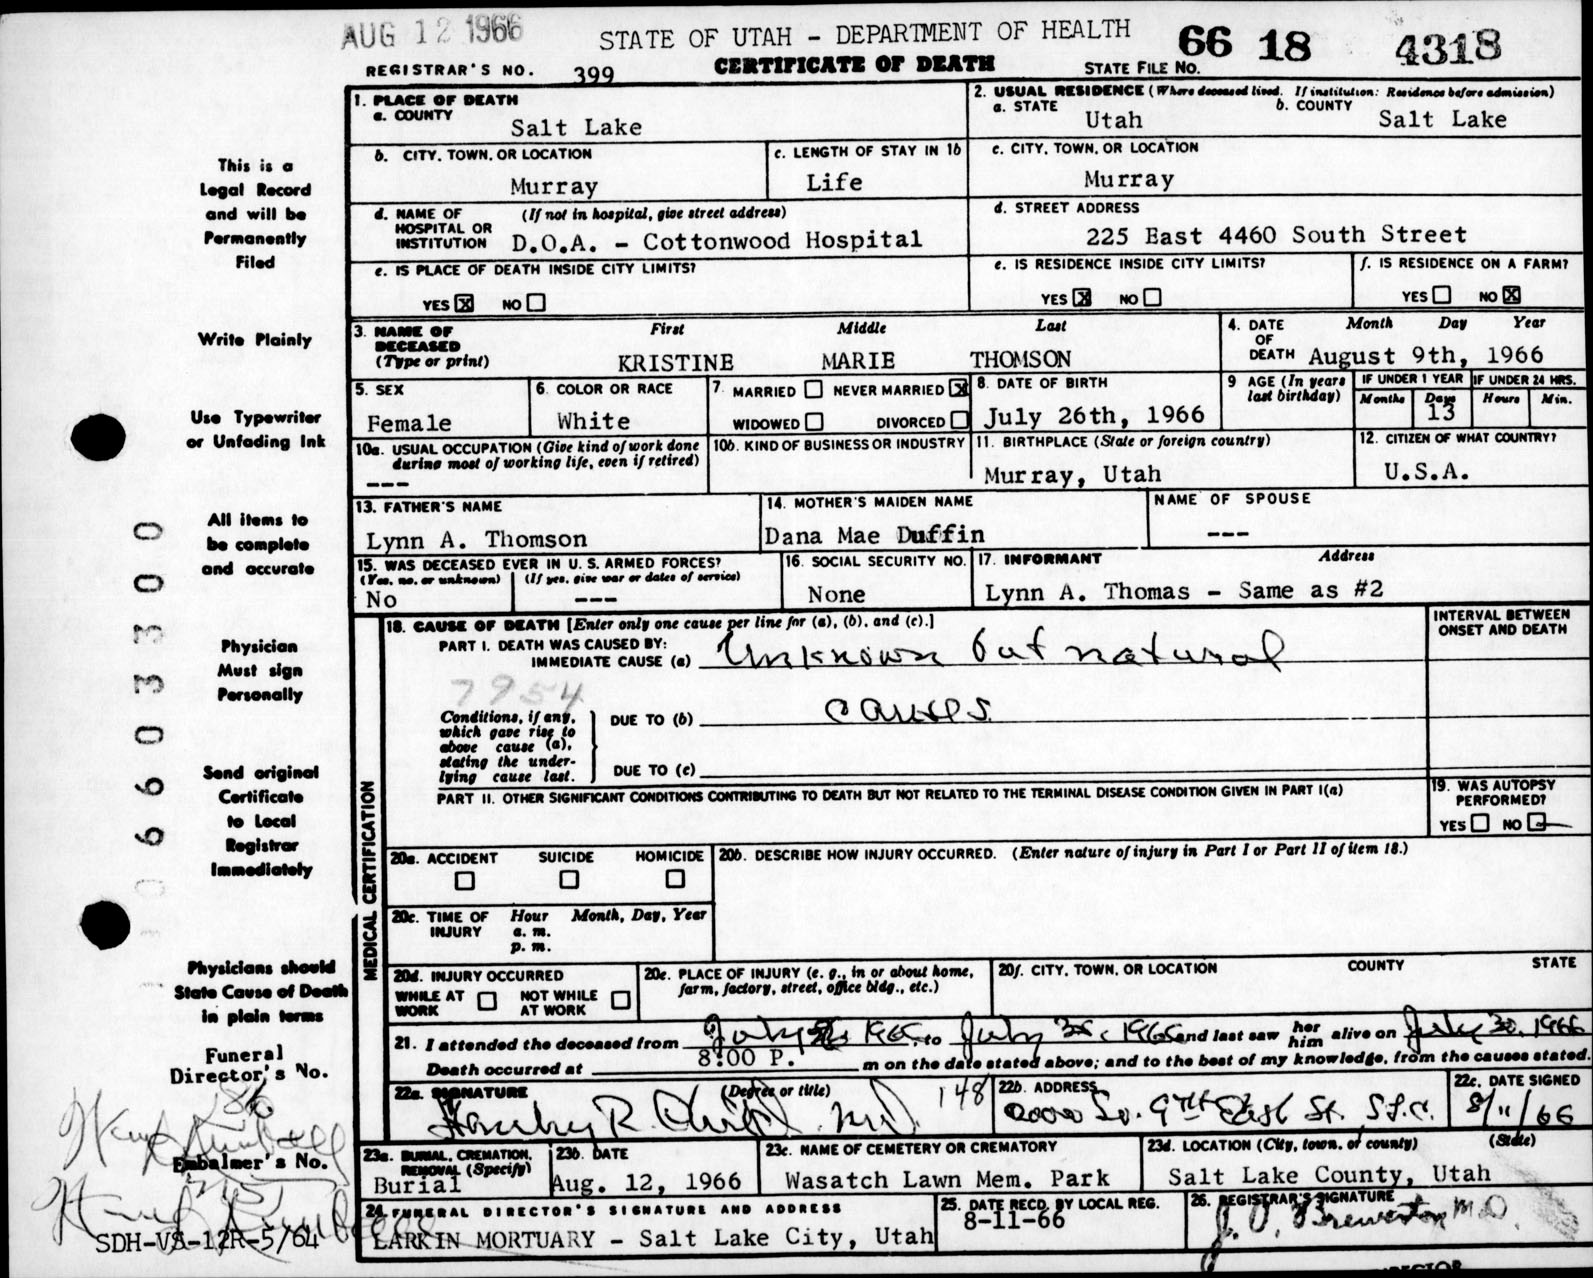 AUG 12 1966
STATE OF UTAH - DEPARTMENT OF HEALTH
66 18 4318
REGISTRAR'S NO. 399
CERTIFICATE OF DEATH
STATE FILE NO.
This is a
Legal Record
and will be
Permanently
Filed
Write Plainly
Use Typewriter
or Unfading Ink
All items to
be complete
and accurate
Physician
Must sign
Personally
Send original
Certificate
to Local
Registrar
Immediately
Physicians should
State Cause of Death
in plain terms
Funeral
Director's No.
Embalmer's No.
SDH-VS-12R-5/64
1. PLACE OF DEATH
a. COUNTY
Salt Lake
2. USUAL RESIDENCE (Where deceased lived. If institution: Residence before admission)
a. STATE Utah
b. COUNTY Salt Lake
b. CITY, TOWN, OR LOCATION
Murray
c. LENGTH OF STAY IN 1b
Life
c. CITY, TOWN, OR LOCATION
Murray
d. NAME OF HOSPITAL OR INSTITUTION (If not in hospital, give street address)
D.O.A. - Cottonwood Hospital
d. STREET ADDRESS
225 East 4460 South Street
e. IS PLACE OF DEATH INSIDE CITY LIMITS?
YES X NO
e. IS RESIDENCE INSIDE CITY LIMITS?
YES X NO
f. IS RESIDENCE ON A FARM?
YES NO X
3. NAME OF DECEASED (Type or print)
First Middle Last
KRISTINE MARIE THOMSON
4. DATE OF DEATH
Month Day Year
August 9th, 1966
5. SEX
Female
6. COLOR OR RACE
White
7. MARRIED NEVER MARRIED X
WIDOWED DIVORCED
8. DATE OF BIRTH
July 26th, 1966
9 AGE (In years last birthday)
IF UNDER 1 YEAR
Months Days
13
IF UNDER 24 HRS.
Hours Min.
10a. USUAL OCCUPATION (Give kind of work done during most of working life, even if retired)
---
10b. KIND OF BUSINESS OR INDUSTRY
11. BIRTHPLACE (State or foreign country)
Murray, Utah
12. CITIZEN OF WHAT COUNTRY?
U.S.A.
13. FATHER'S NAME
Lynn A. Thomson
14. MOTHER'S MAIDEN NAME
Dana Mae Duffin
NAME OF SPOUSE
---
15. WAS DECEASED EVER IN U. S. ARMED FORCES?
(Yes, no, or unknown) (If yes, give war or dates of service)
No ---
16. SOCIAL SECURITY NO.
None
17. INFORMANT Address
Lynn A. Thomas - Same as #2
MEDICAL CERTIFICATION
18. CAUSE OF DEATH [Enter only one cause per line for (a), (b), and (c).]
INTERVAL BETWEEN ONSET AND DEATH
PART I. DEATH WAS CAUSED BY:
IMMEDIATE CAUSE (a) Unknown but natural
7954
Conditions, if any, which gave rise to above cause (a), stating the underlying cause last.
DUE TO (b) causes.
DUE TO (c)
PART II. OTHER SIGNIFICANT CONDITIONS CONTRIBUTING TO DEATH BUT NOT RELATED TO THE TERMINAL DISEASE CONDITION GIVEN IN PART I(a)
19. WAS AUTOPSY PERFORMED?
YES NO
20a. ACCIDENT SUICIDE HOMICIDE
20b. DESCRIBE HOW INJURY OCCURRED. (Enter nature of injury in Part I or Part II of item 18.)
20c. TIME OF INJURY Hour Month, Day, Year
a. m.
p. m.
20d. INJURY OCCURRED
WHILE AT WORK NOT WHILE AT WORK
20e. PLACE OF INJURY (e. g., in or about home, farm, factory, street, office bldg., etc.)
20f. CITY, TOWN, OR LOCATION COUNTY STATE
21. I attended the deceased from July 1966 to July 1966 and last saw her him alive on July 30, 1966
Death occurred at 8:00 P. m on the date stated above; and to the best of my knowledge, from the causes stated.
22a. SIGNATURE (Degree or title)
R. M.D. 148
22b. ADDRESS
So. 9th East St. S.L.C.
22c. DATE SIGNED
8/11/66
23a. BURIAL, CREMATION, REMOVAL (Specify)
Burial
23b. DATE
Aug. 12, 1966
23c. NAME OF CEMETERY OR CREMATORY
Wasatch Lawn Mem. Park
23d. LOCATION (City, town, or county) (State)
Salt Lake County, Utah
24. FUNERAL DIRECTOR'S SIGNATURE AND ADDRESS
LARKIN MORTUARY - Salt Lake City, Utah
25. DATE RECD. BY LOCAL REG.
8-11-66
26. REGISTRAR'S SIGNATURE
J. O. Brewerton M.D.